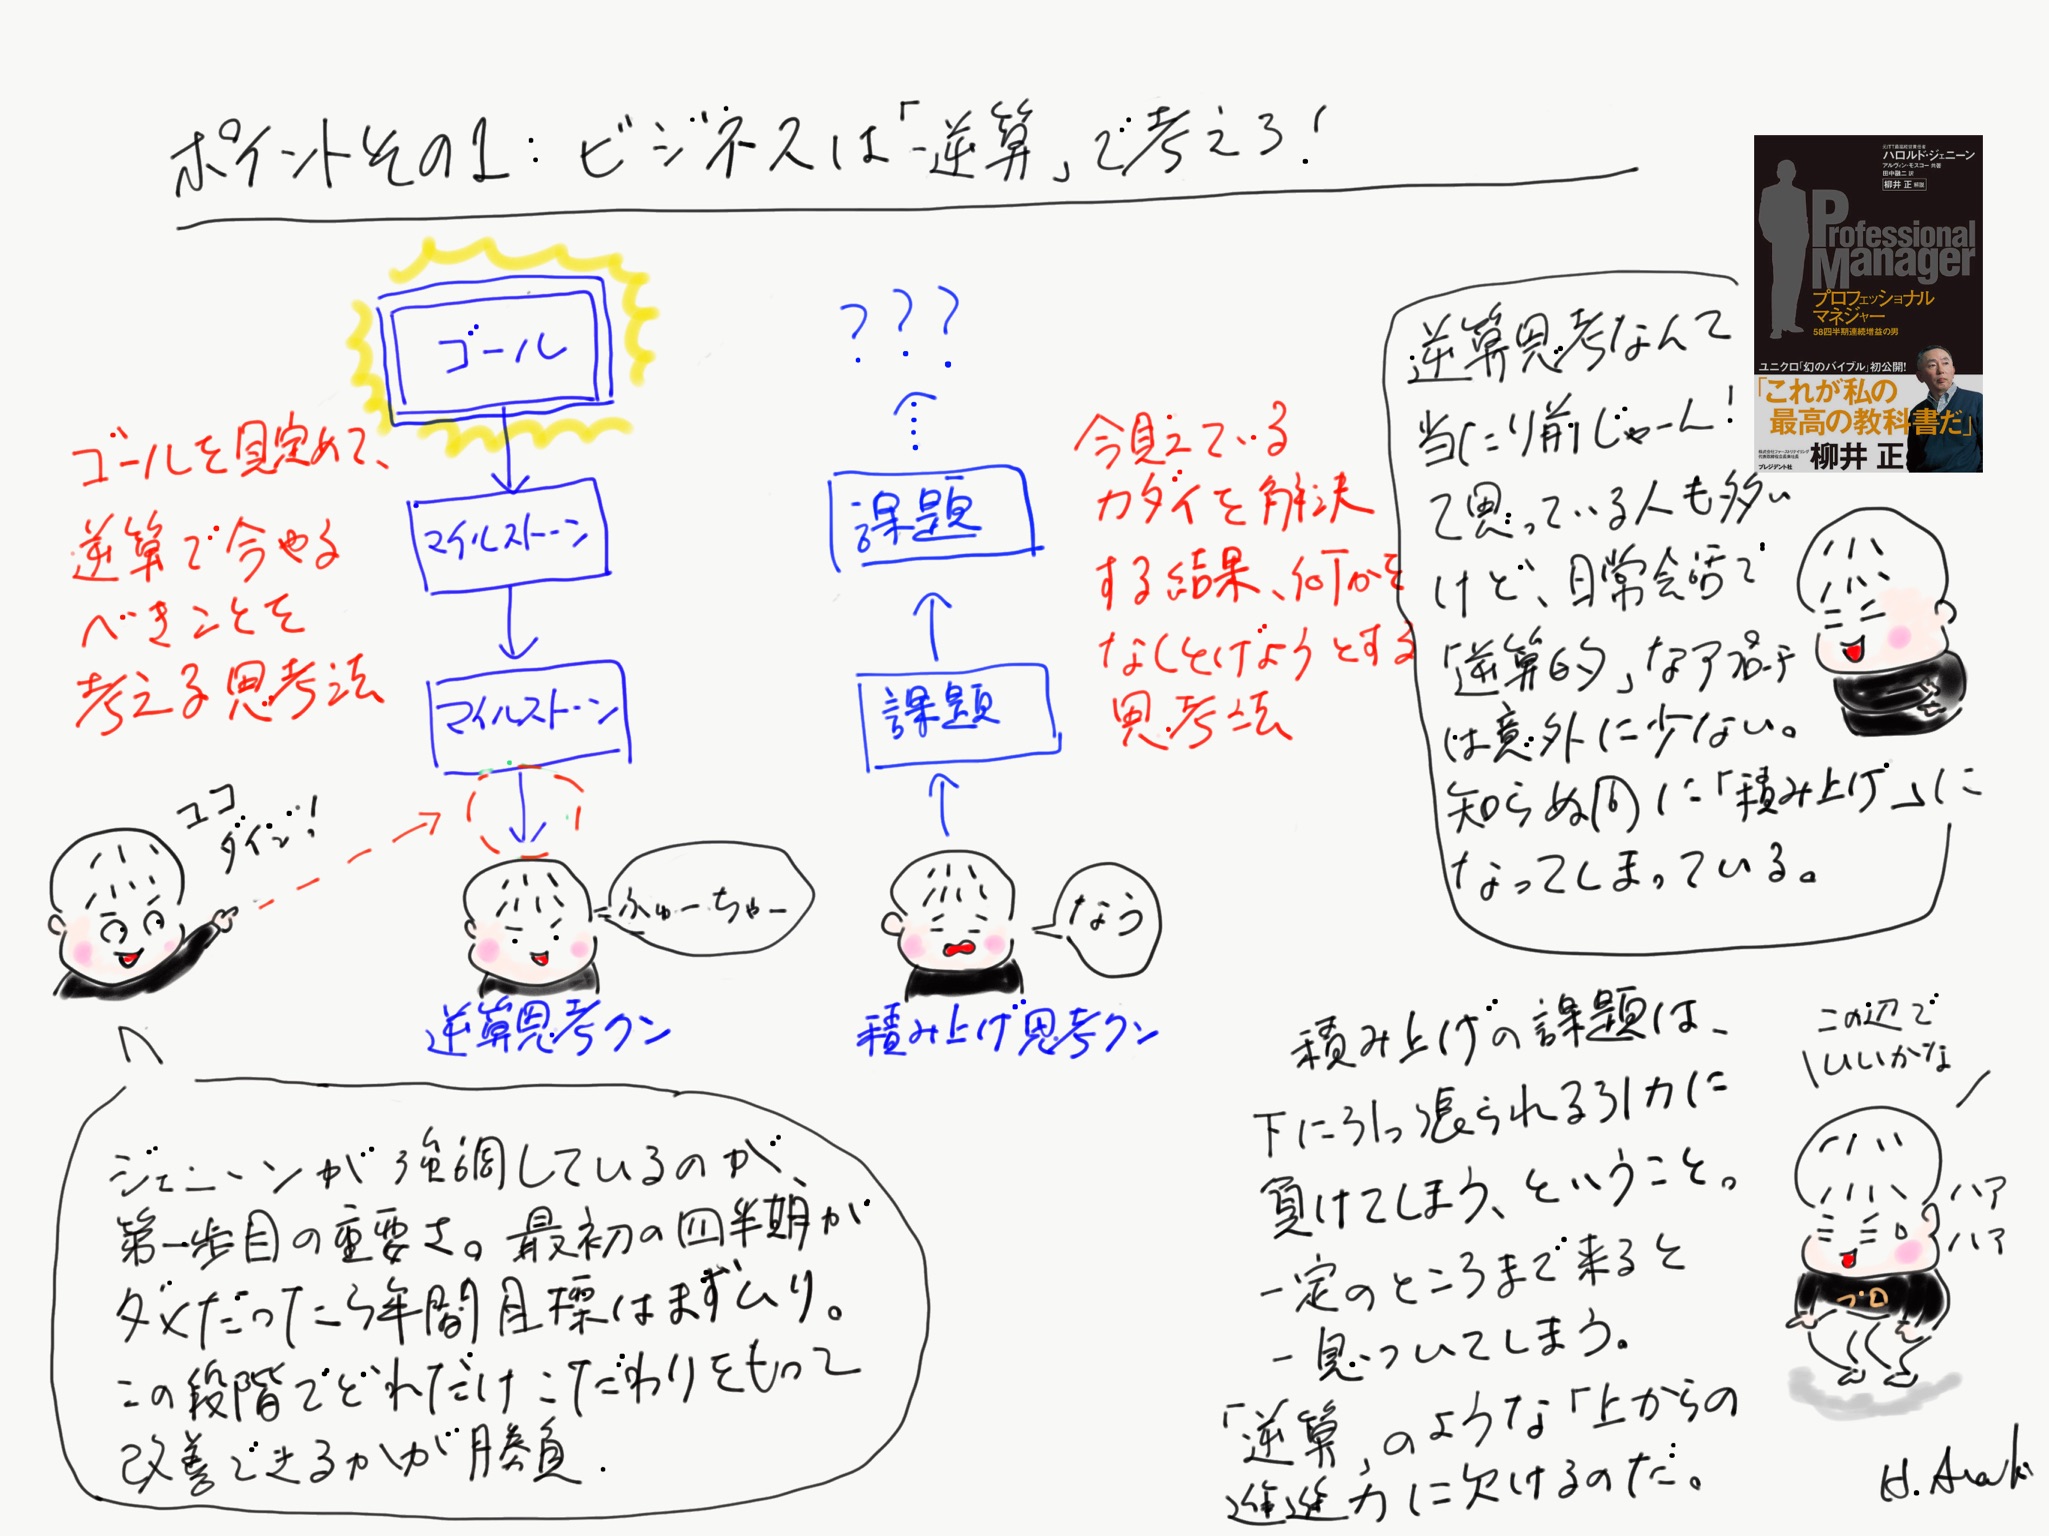 ポイントその1：ビジネスは「逆算」で考えろ！
元ITT最高経営責任者
ハロルド・ジェニーン
アルヴィン・モスコー 共著
田中融二 訳
柳井 正 解説
Professional
Manager
プロフェッショナル
マネジャー
58四半期連続増益の男
ユニクロ「幻のバイブル」初公開!
「これが私の
最高の教科書だ」
株式会社ファーストリテイリング
代表取締役会長兼社長
柳井 正
プレジデント社
ゴール
マイルストーン
マイルストーン
ゴールを見定めて、
逆算で今やる
べきことを
考える思考法
???
課題
課題
今見えている
カダイを解決
する結果、何かを
なしとげようとする
思考法
逆算思考なんて
当たり前じゃーん!
て思っている人も多い
けど、日常会話で
「逆算的」なアプローチ
は意外に少ない。
知らぬ間に「積み上げ」に
なってしまっている。
ココ
ダイジ!
ふゅーちゃー
なう
逆算思考クン
積み上げ思考クン
ジェニーンが強調しているのが、
第一歩目の重要さ。最初の四半期が
ダメだったら年間目標はまずムリ。
この段階でどれだけこだわりをもって
改善できるかが勝負.
積み上げの課題は、
下に引っ張られる引力に
負けてしまう、ということ。
一定のところまで来ると
一息ついてしまう。
「逆算」のような「上からの
進力に欠けるのだ。
この辺で
いいかな
ハア
ハア
プロ
H. Araki